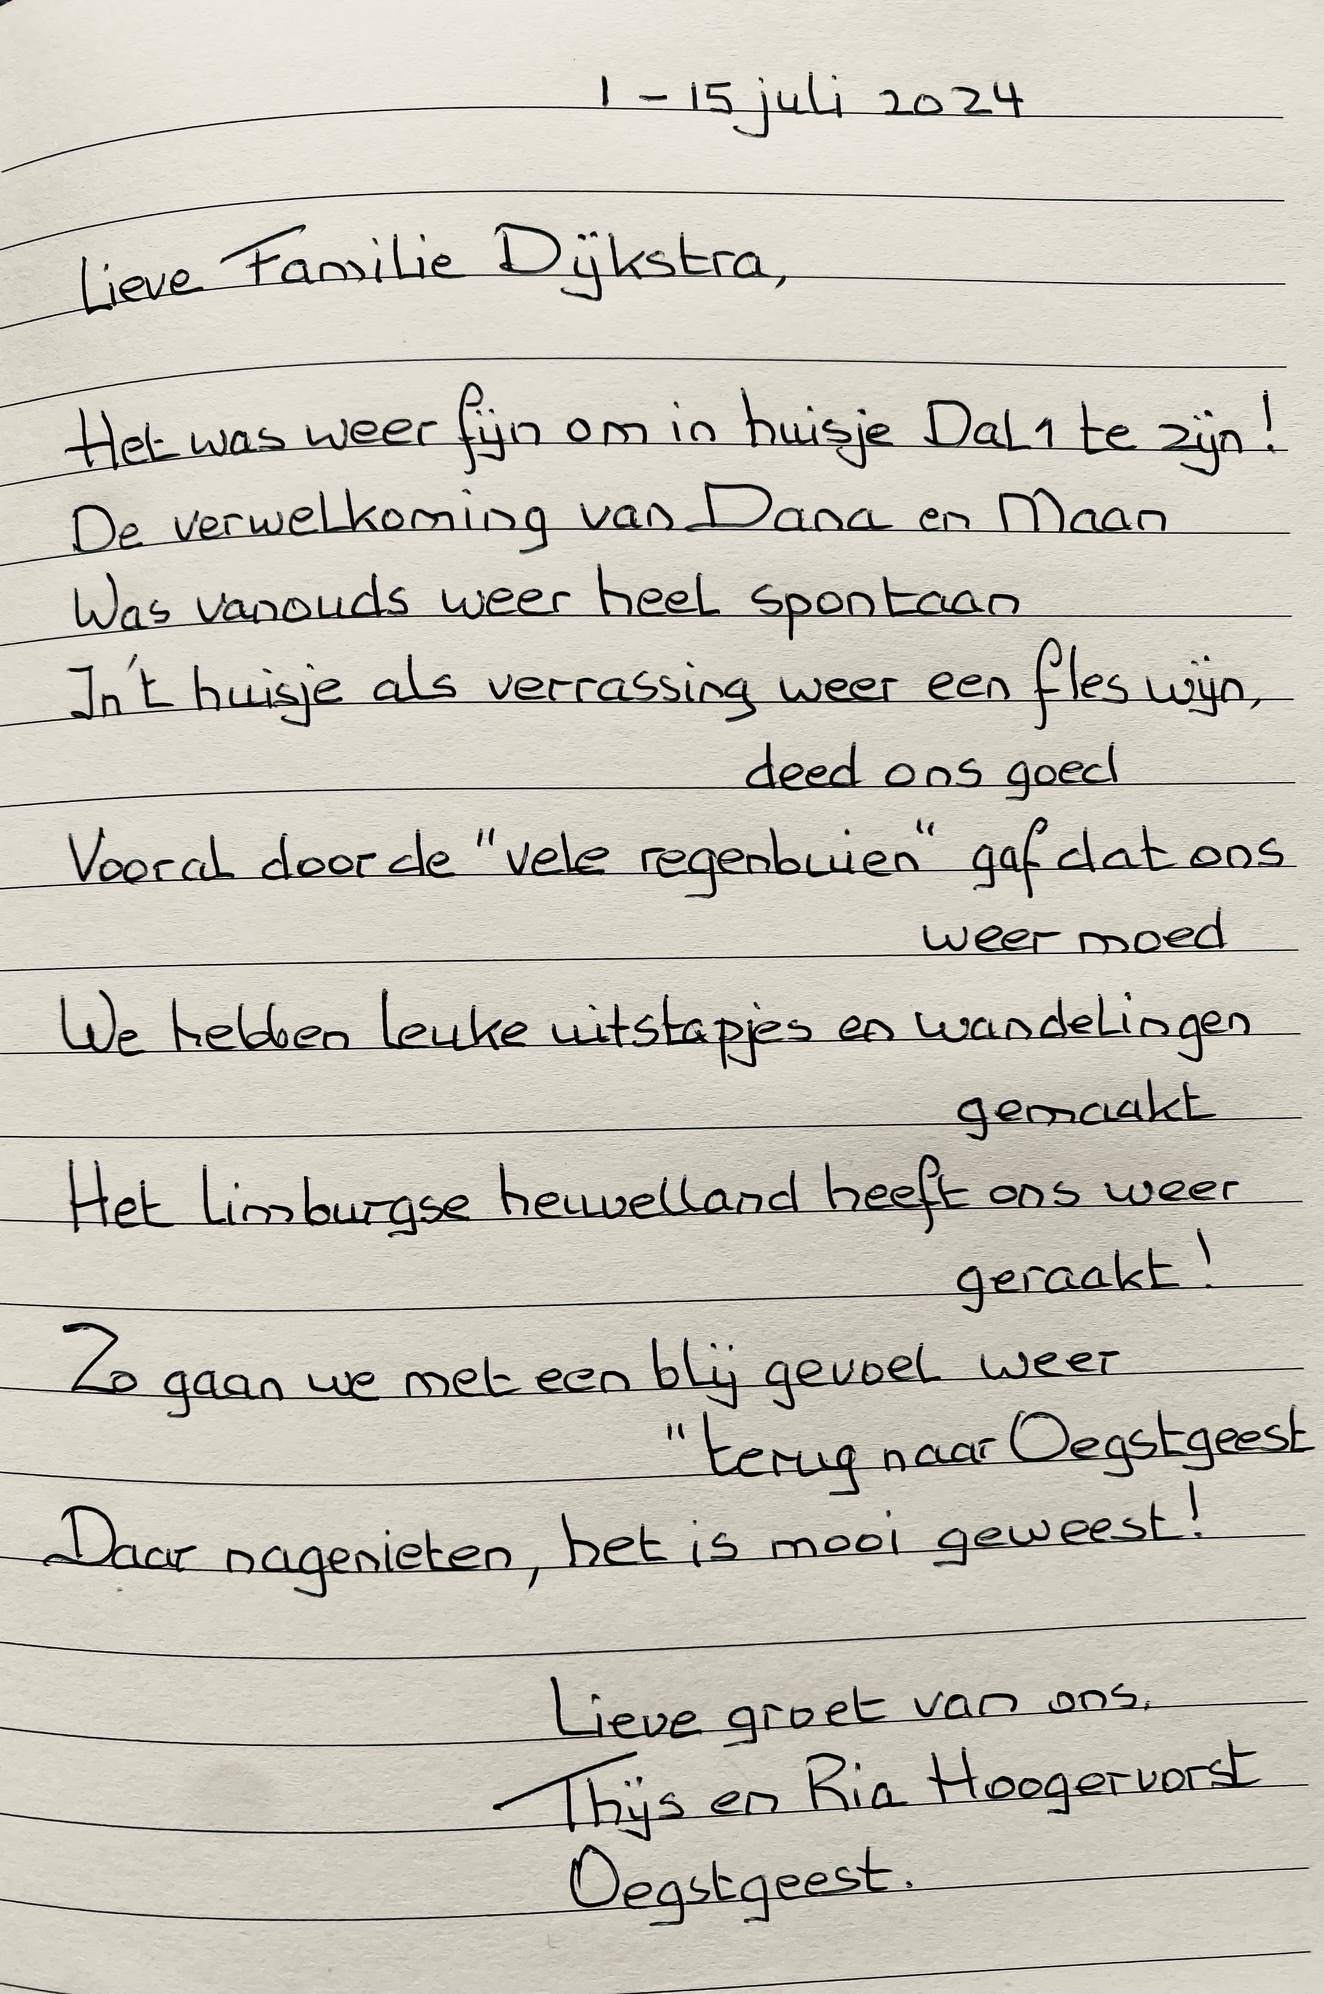 1 - 15 juli 2024
Lieve Familie Dijkstra,
Het was weer fijn om in huisje Dal 1 te zijn!
De verwelkoming van Dana en Maan
Was vanouds weer heel spontaan
In 't huisje als verrassing weer een fles wijn,
deed ons goed
Vooral door de "vele regenbuien" gaf dat ons
weer moed
We hebben leuke uitstapjes en wandelingen
gemaakt
Het Limburgse heuvelland heeft ons weer
geraakt!
Zo gaan we met een blij gevoel weer
"terug naar Oegstgeest
Daar nagenieten, het is mooi geweest!
Lieve groet van ons.
Thijs en Ria Hoogervorst
Oegstgeest.